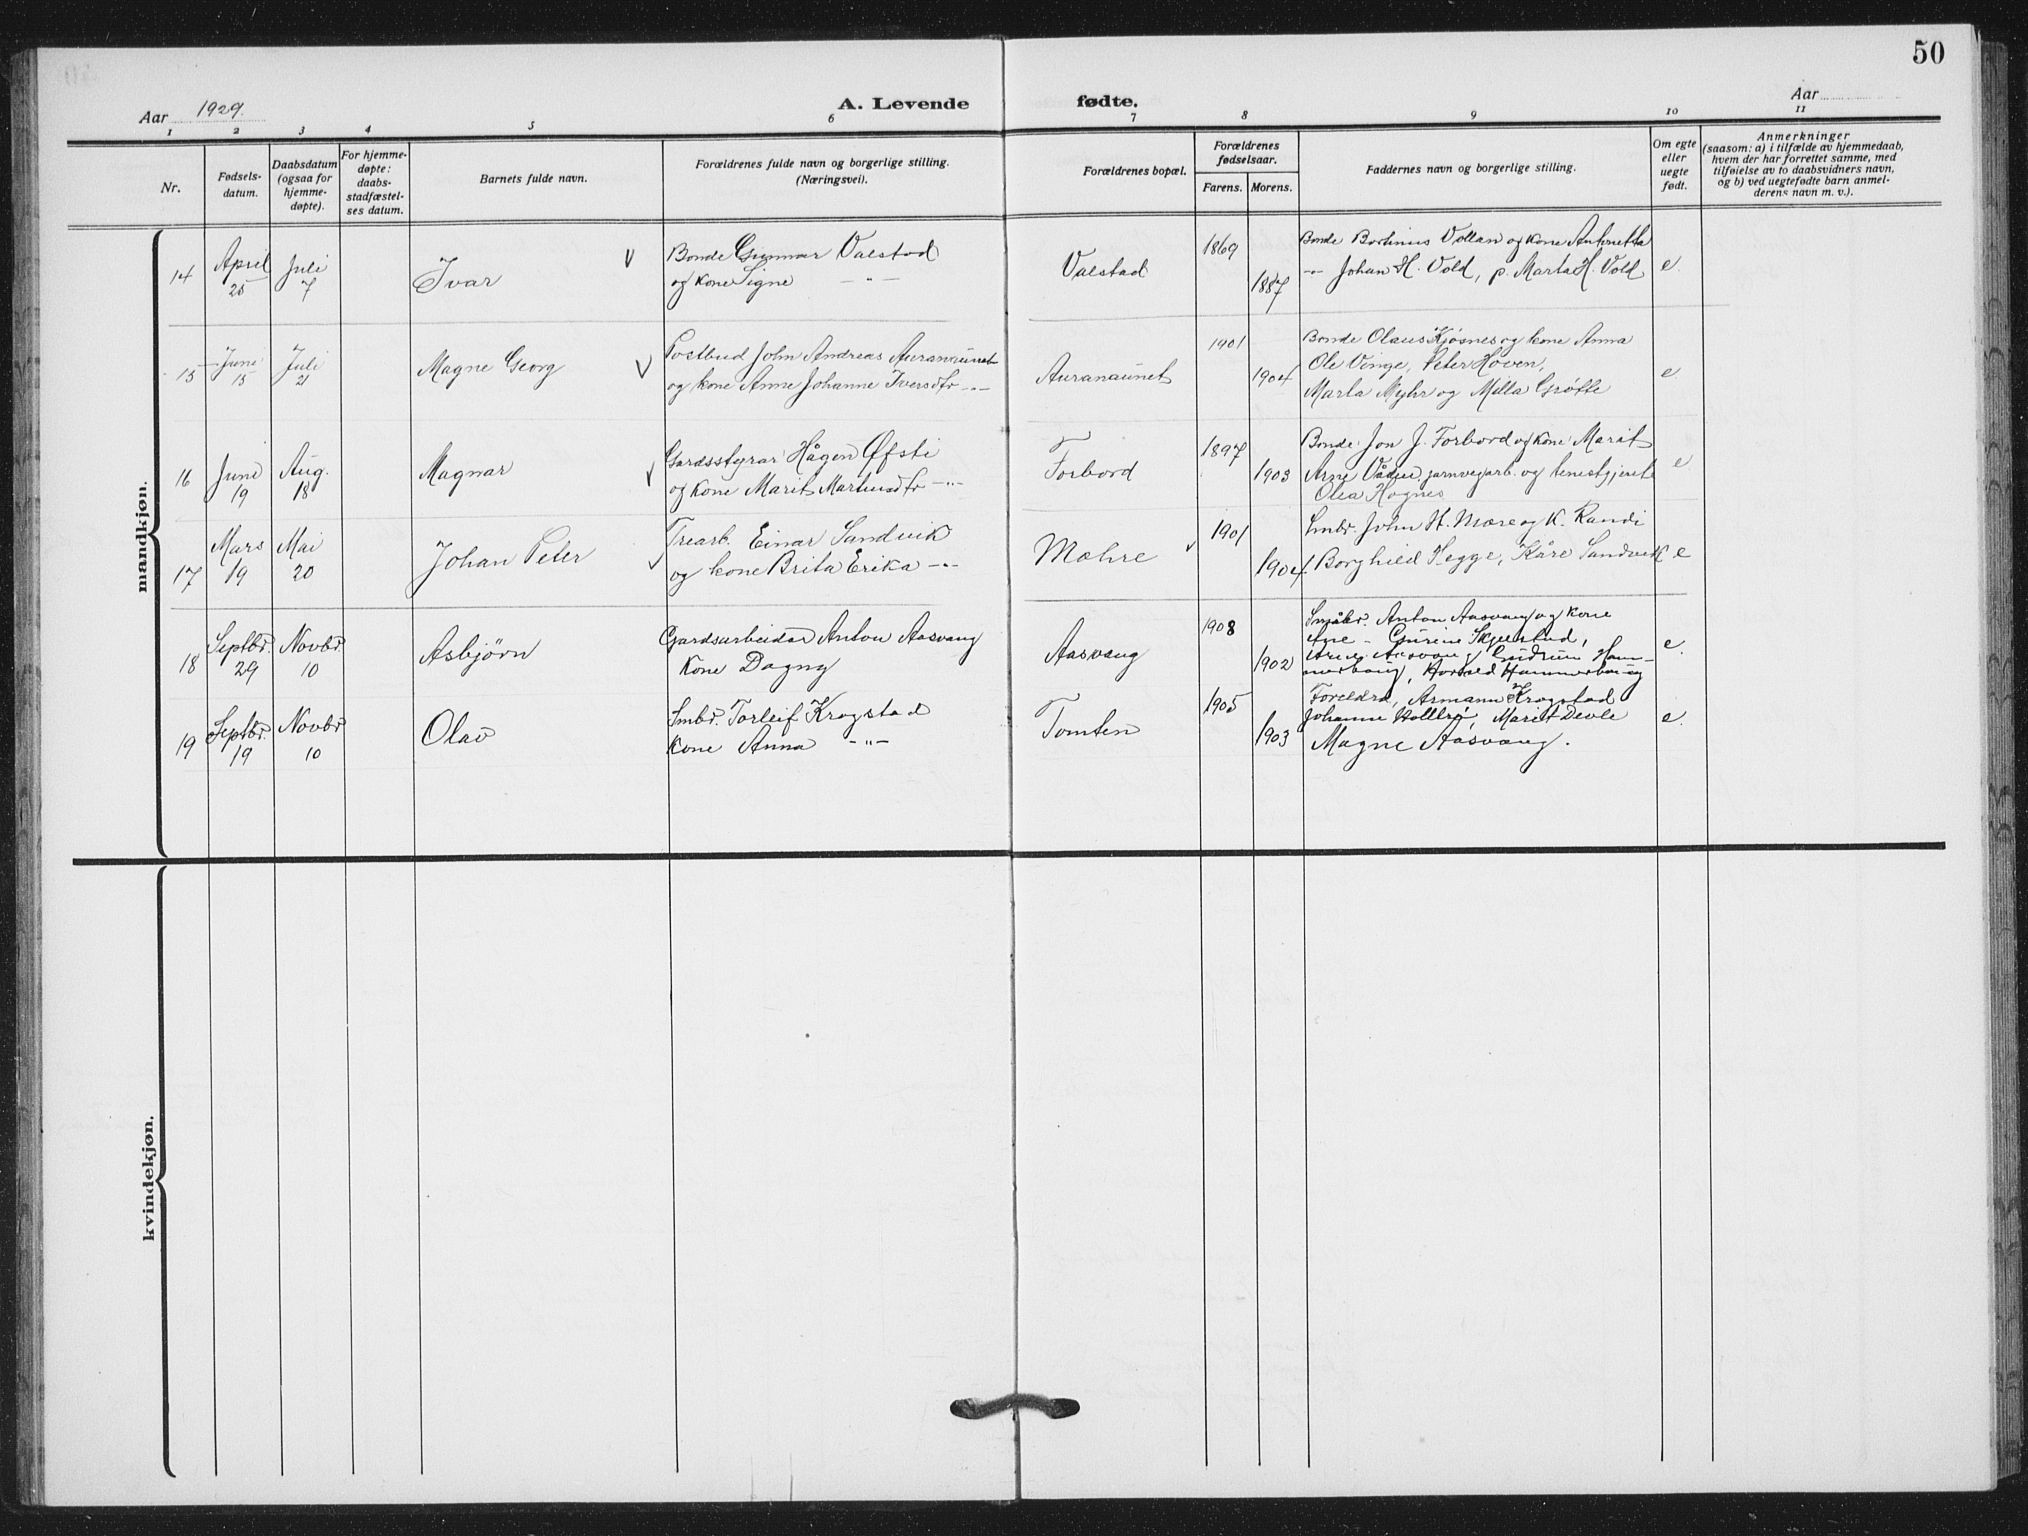 50
Aar 1929. A. Levende fødte. Aar
1 2 3 4 5 6 7 8 9 10 11
Nr.
Fødsels-
datum.
Daabsdatum
(ogsaa for
hjemme-
døpte).
For hjemme-
døpte:
daabs-
stadfæstel-
ses datum.
Barnets fulde navn.
Forældrenes fulde navn og borgerlige stilling.
(Næringsvei).
Forældrenes bopæl.
Forældrenes
fødselsaar.
Farens. Morens.
Faddernes navn og borgerlige stilling.
Om egte
eller
uegte
født.
Anmerkninger
(saasom: a) i tilfælde av hjemmedaab,
hvem der har forrettet samme, med
tilføielse av to daabsvidners navn,
og b) ved uegtefødte barn anmel-
derens navn m. v.).
mandkjøn.
14
April
25
Juli
7
Ivar
Bonde Gunnar Valstad
og kone Signe -"-
Valstad
1869
1887
Bonde Bortinus Vollan og kone Antonetta
-"- Johan H. Vold, p. Marta H. Vold
e
15
June
15
Juli
21
Magne Georg
Postbud John Andreas Auranaunet
og kone Anne Johanne Iversdtr -"-
Auranaunet
1901
1904
Bonde Olaus Kjøsnes og kone Anna
Ole Vinge, Peter Hoven,
Marta Myhr og Milla Grøtte
e
16
June
19
Aug.
18
Magnar
Gardsstyrar Hågen Øfsti
og kone Marit Martinusdtr -"-
Forbord
1897
1903
Bonde Jon J. Forbord og kone Marit
Arne jarnvegarb. og tenestgjente
Olea Hognes
e
17
Mars
19
Mai
20
Johan Peter
Trearb. Einar Sandvik
og kone Brita Erika -"-
Mæhre
1901
1904
Smbr. John H. Mære og K. Randi
Borghild Hegge, Kåre Sandvik
e
18
Septbr.
29
Novbr.
10
Asbjørn
Gardsarbeidar Anton Aasvang
Kone Dagny
Aasvang
1908
1902
Småbr. Anton Aasvang og kone
Ane - Gurine Skjelstad,
Aasvang, Gudrun Ham-
merbaug, Harald Hammerbaug
e.
19
Septbr.
19
Novbr
10
Olav
Smbr. Torleif Krogstad
Kone Anna -"-
Tomten
1905
1903
Foreldra, Armann Krogstad
Johanne Marit Devle
Magne Aasvang.
e.
kvindekjøn.